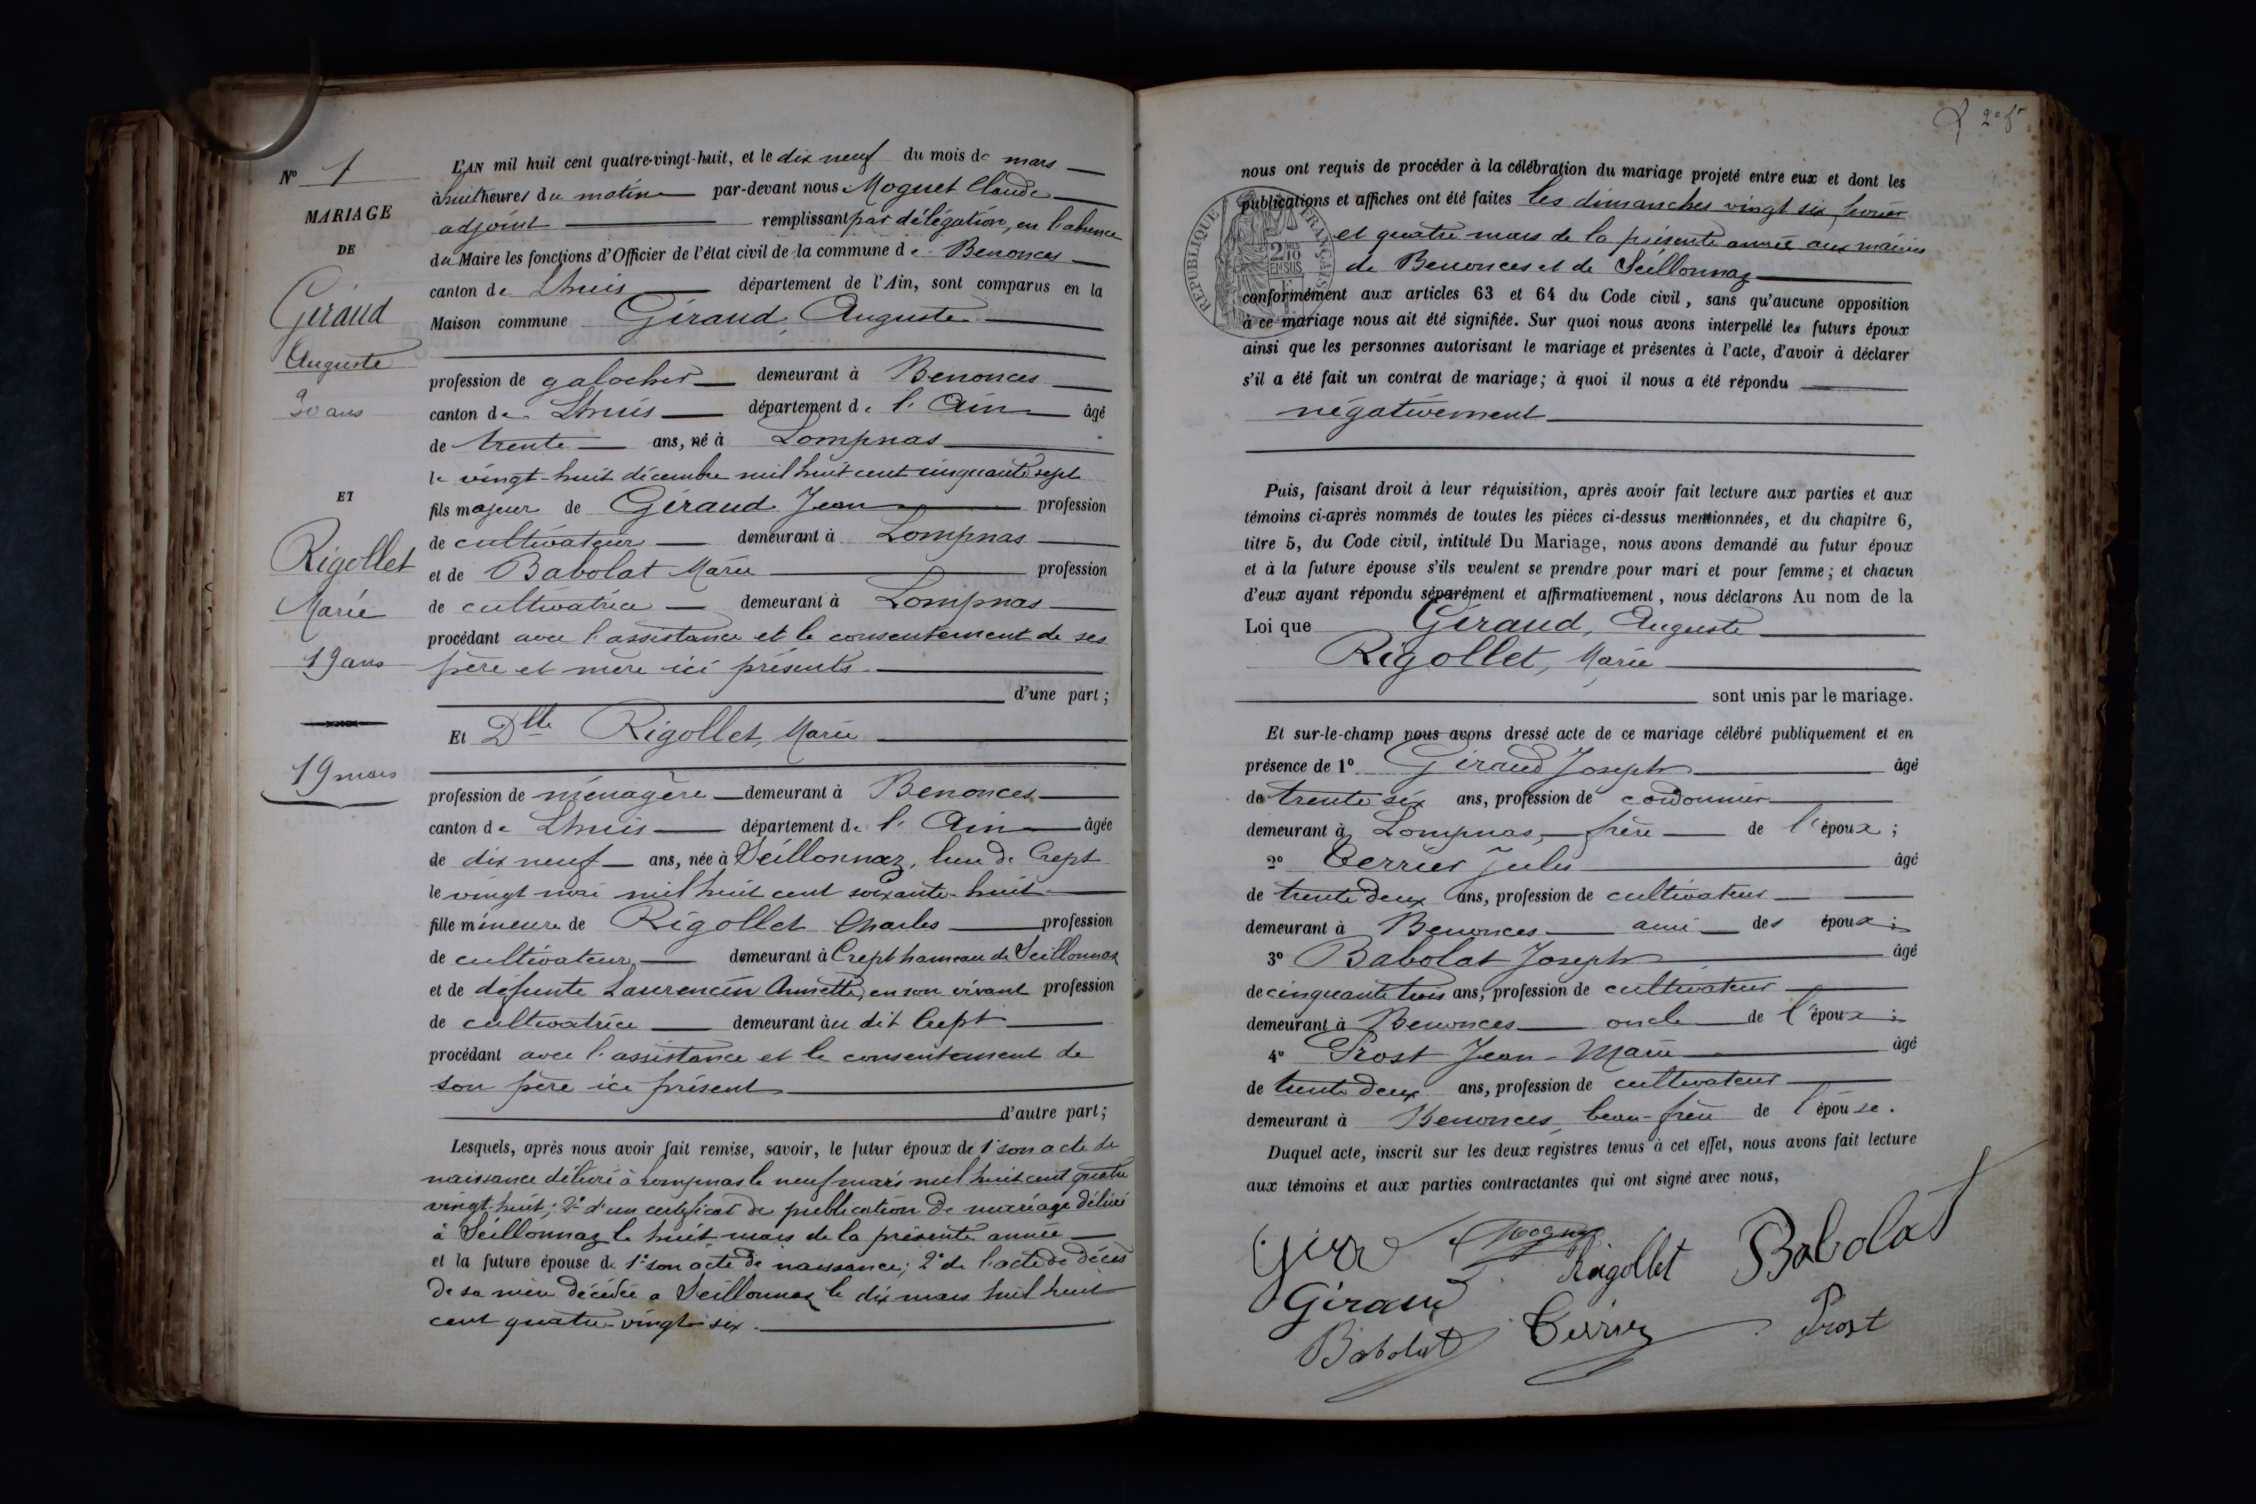 Nº 1
MARIAGE
DE
Géraud
Auguste
30 ans
ET
Rigollet
Marie
19 ans
19 mars
L'AN mil huit cent quatre-vingt-huit, et le dix neuf du mois de mars
à huit heures du matin par-devant nous Moguet Claude
adjoint remplissant par délégation, en l'absence
du Maire les fonctions d'Officier de l'état civil de la commune de Benonces
canton de Lhuis département de l'Ain, sont comparus en la
Maison commune Géraud, Auguste
profession de galocher demeurant à Benonces
canton de Lhuis département de l'Ain âgé
de trente ans, né à Lompnas
le vingt-huit décembre mil huit cent cinquante sept
fils majeur de Géraud Jean profession
de cultivateur demeurant à Lompnas
et de Babolat Marie profession
de cultivatrice demeurant à Lompnas
procédant avec l'assistance et le consentement de ses
père et mère ici présents
d'une part;
Et Dlle Rigollet, Marie
profession de ménagère demeurant à Benonces
canton de Lhuis département de l'Ain âgée
de dix neuf ans, née à Seillonnaz, lieu de Crept
le vingt mai mil huit cent soixante-huit
fille mineure de Rigollet Charles profession
de cultivateur demeurant à Crept hameau de Seillonnaz
et de défunte Laurencin Annette, en son vivant profession
de cultivatrice demeurant au dit Crept
procédant avec l'assistance et le consentement de
son père ici présent
d'autre part;
Lesquels, après nous avoir fait remise, savoir, le futur époux de 1° son acte de
naissance délivré à Lompnas le neuf mars mil huit cent quatre
vingt-huit; 2° d'un certificat de publication de mariage délivré
à Seillonnaz le huit mars de la présente année
et la future épouse de 1° son acte de naissance; 2° de l'acte de décès
de sa mère décédée à Seillonnaz le dix mars mil huit
cent quatre-vingt-six.
2e ft
nous ont requis de procéder à la célébration du mariage projeté entre eux et dont les
publications et affiches ont été faites les dimanches vingt six février
et quatre mars de la présente année aux mairies
de Benonces et de Seillonnaz
RÉPUBLIQUE FRANÇAISE
2/10 EN SUS
conformément aux articles 63 et 64 du Code civil, sans qu'aucune opposition
à ce mariage nous ait été signifiée. Sur quoi nous avons interpellé les futurs époux
ainsi que les personnes autorisant le mariage et présentes à l'acte, d'avoir à déclarer
s'il a été fait un contrat de mariage; à quoi il nous a été répondu
négativement
Puis, faisant droit à leur réquisition, après avoir fait lecture aux parties et aux
témoins ci-après nommés de toutes les pièces ci-dessus mentionnées, et du chapitre 6,
titre 5, du Code civil, intitulé Du Mariage, nous avons demandé au futur époux
et à la future épouse s'ils veulent se prendre pour mari et pour femme; et chacun
d'eux ayant répondu séparément et affirmativement, nous déclarons Au nom de la
Loi que Géraud, Auguste
Rigollet, Marie
sont unis par le mariage.
Et sur-le-champ nous avons dressé acte de ce mariage célébré publiquement et en
présence de 1º Géraud Joseph âgé
de trente six ans, profession de cordonnier
demeurant à Lompnas, frère de l'époux;
2º Terrier Jules âgé
de trente deux ans, profession de cultivateur
demeurant à Benonces ami des époux;
3º Babolat Joseph âgé
de cinquante trois ans, profession de cultivateur
demeurant à Benonces oncle de l'époux;
4º Prost Jean-Marie âgé
de trente deux ans, profession de cultivateur
demeurant à Benonces, beau-frère de l'épouse.
Duquel acte, inscrit sur les deux registres tenus à cet effet, nous avons fait lecture
aux témoins et aux parties contractantes qui ont signé avec nous,
Rigollet Babolat
Géraud
Babolat Terrier Prost